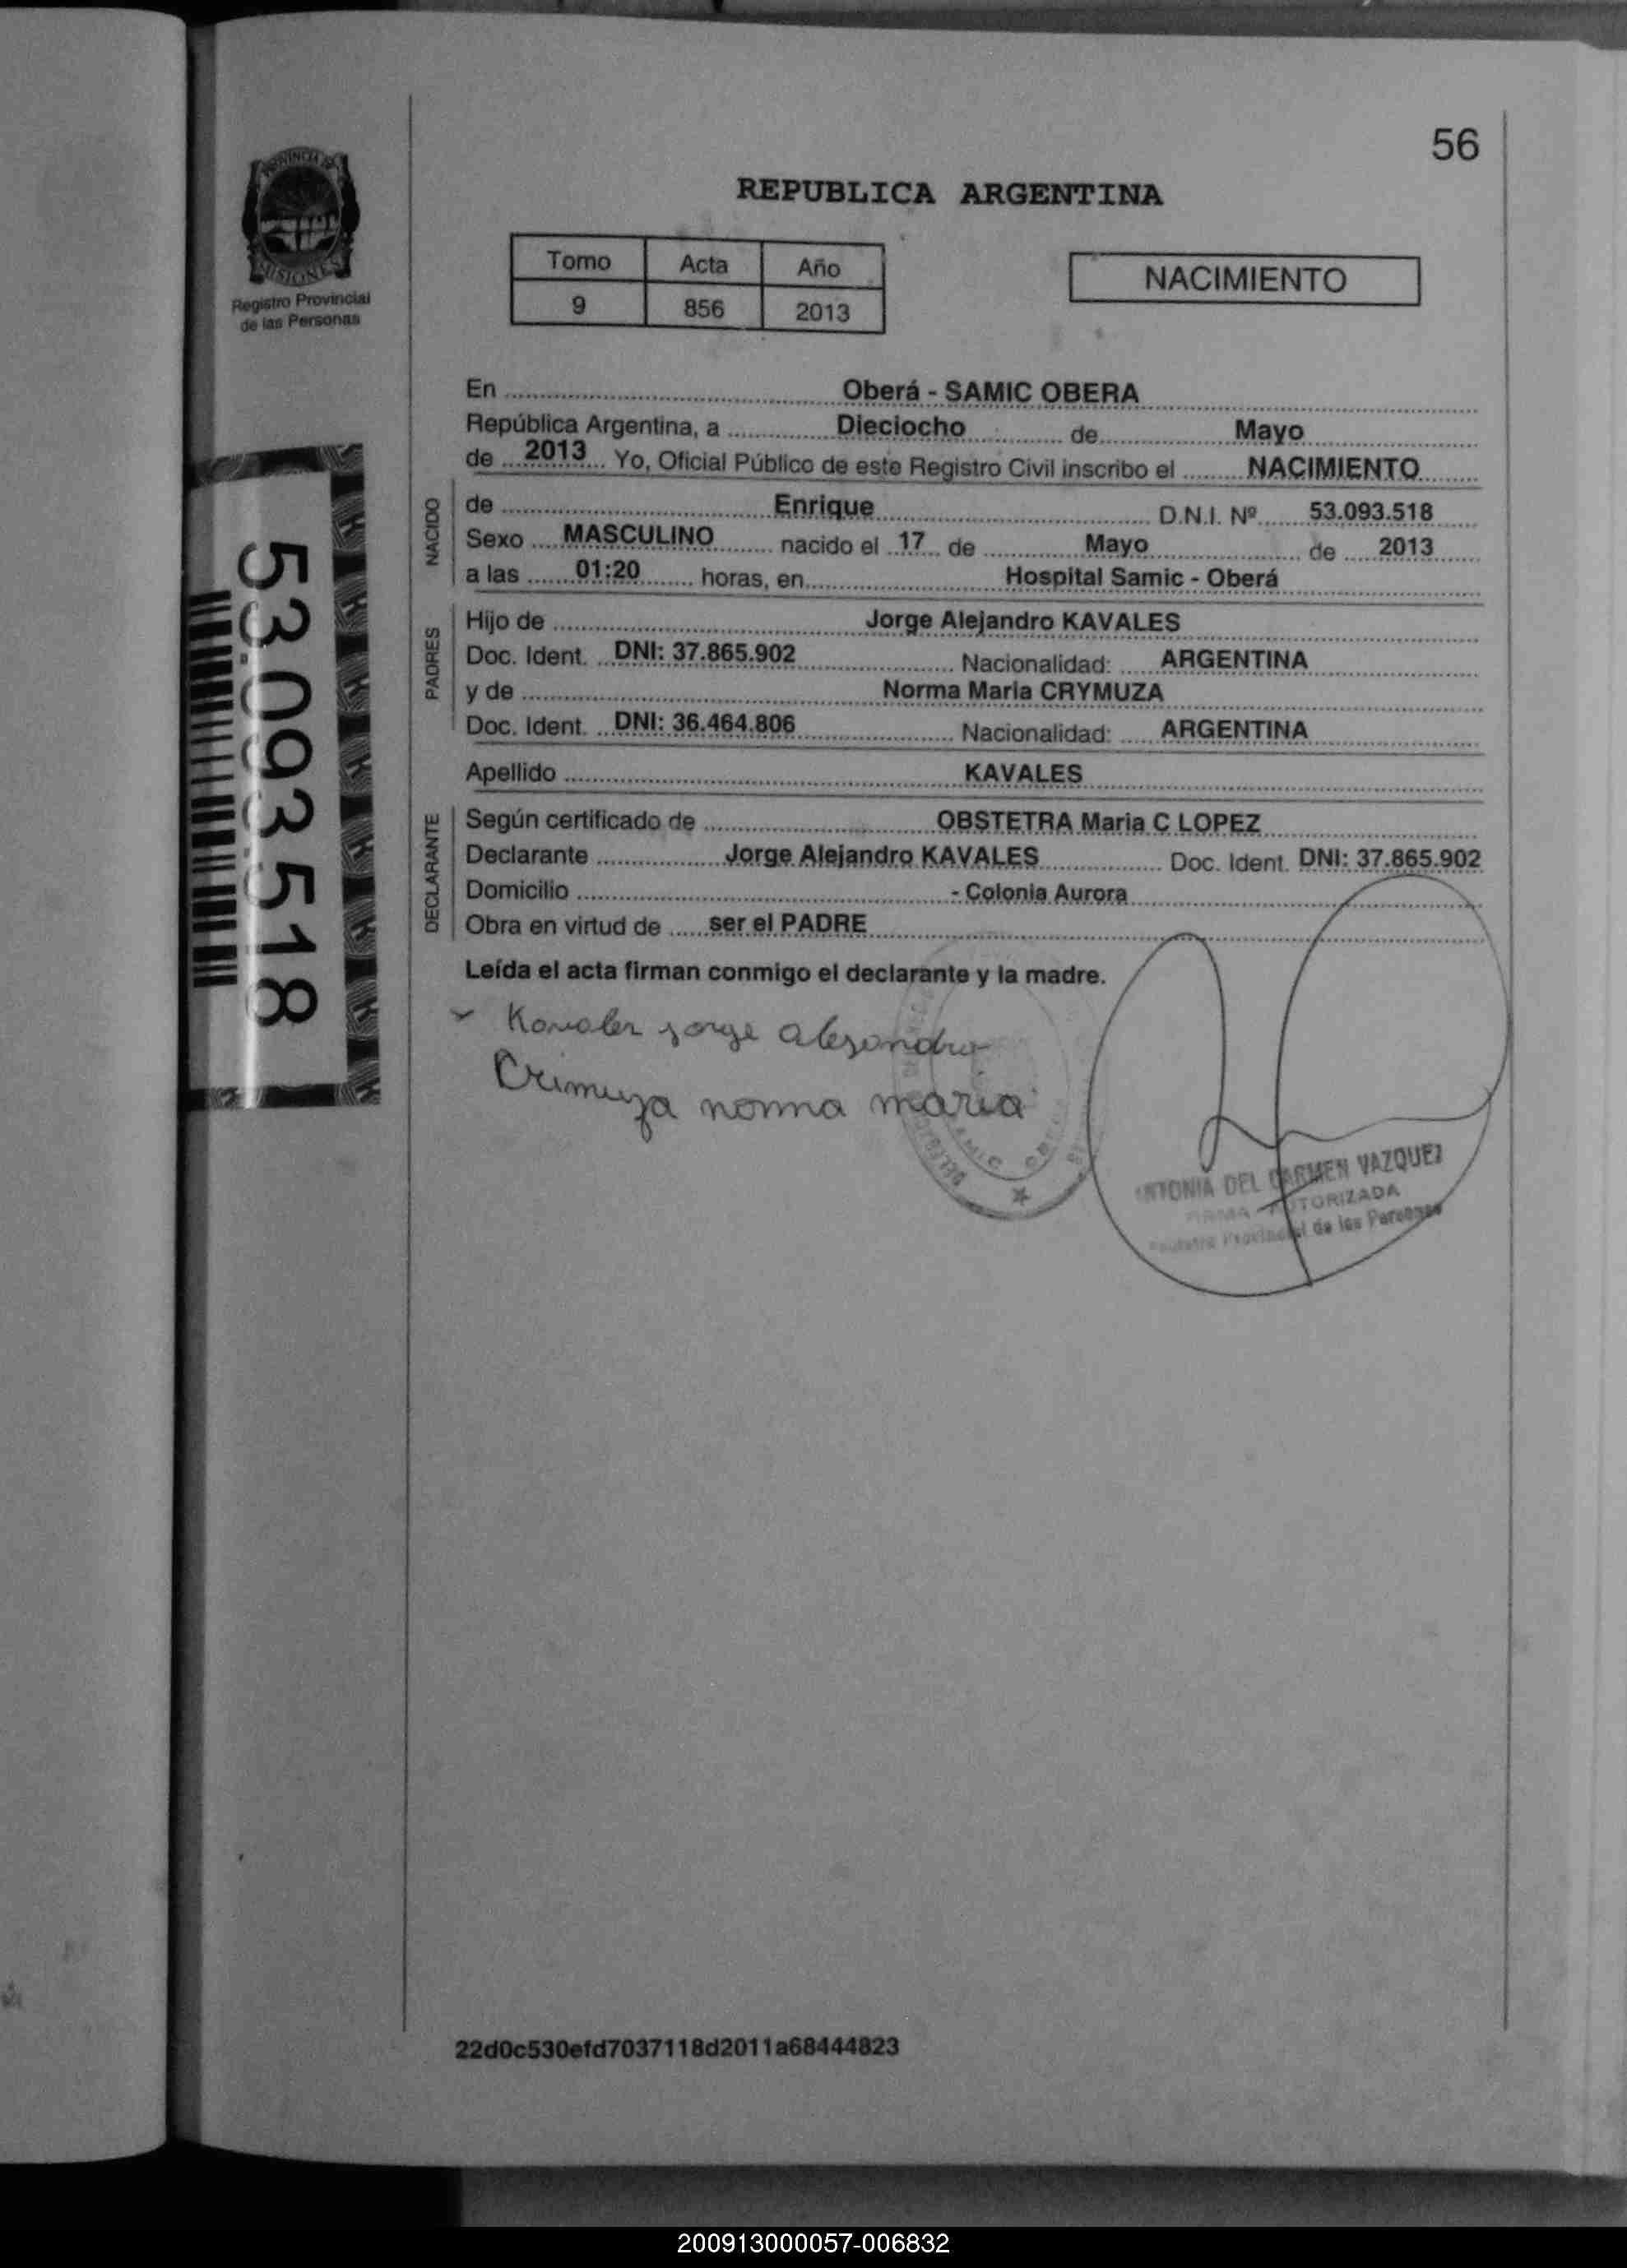 56
PROVINCIA DE
MISIONES
Registro Provincial
de las Personas
REPUBLICA ARGENTINA
Tomo Acta Año
9 856 2013
NACIMIENTO
53.093.518
En Oberá - SAMIC OBERA
República Argentina, a Dieciocho de Mayo
de 2013 Yo, Oficial Público de este Registro Civil inscribo el NACIMIENTO
NACIDO
de Enrique D.N.I. Nº 53.093.518
Sexo MASCULINO nacido el 17 de Mayo de 2013
a las 01:20 horas, en Hospital Samic - Oberá
PADRES
Hijo de Jorge Alejandro KAVALES
Doc. Ident. DNI: 37.865.902 Nacionalidad: ARGENTINA
y de Norma Maria CRYMUZA
Doc. Ident. DNI: 36.464.806 Nacionalidad: ARGENTINA
Apellido KAVALES
DECLARANTE
Según certificado de OBSTETRA Maria C LOPEZ
Declarante Jorge Alejandro KAVALES Doc. Ident. DNI: 37.865.902
Domicilio - Colonia Aurora
Obra en virtud de ser el PADRE
Leída el acta firman conmigo el declarante y la madre.
Kavales jorge alejandro
Crimuza norma maria
DEL CARMEN VAZQUEZ
FIRMA AUTORIZADA
Registro Provincial de las Personas
22d0c530efd7037118d2011a68444823
200913000057-006832